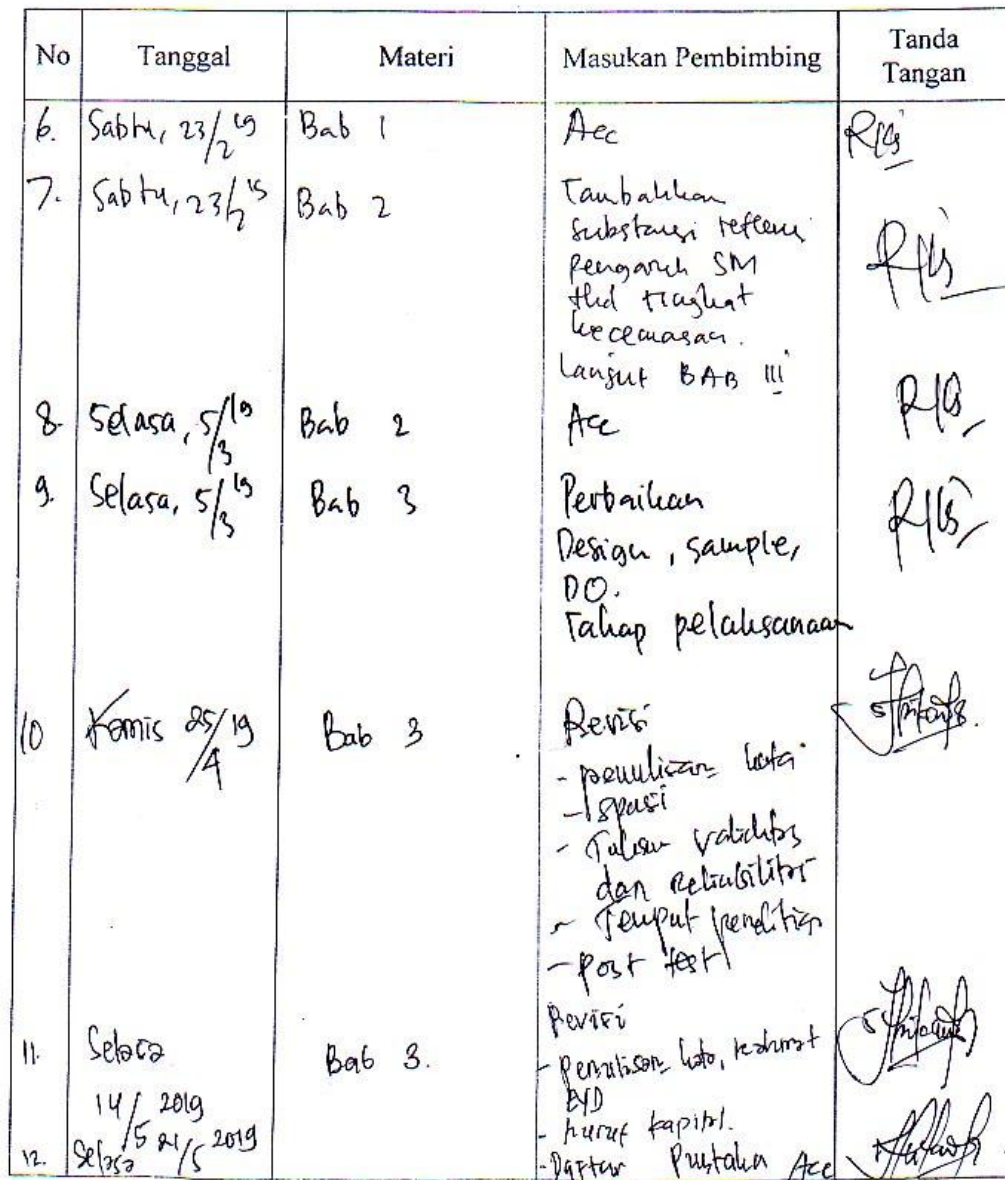 No Tanggal Materi Masukan Pembimbing Tanda Tangan
6. Sabtu, 23/2 19 Bab 1 Acc
7. Sabtu, 23/2 19 Bab 2 Tambahkan
substansi refleksi
pengaruh SM
thd tingkat
kecemasan.
Lanjut BAB III
8. Selasa, 5/3 19 Bab 2 Acc
9. Selasa, 5/3 19 Bab 3 Perbaikan
Design, sample,
DO.
Tahap pelaksanaan
10 Kamis 25/4 19 Bab 3 Revisi
- penulisan kata
- spasi
- validitas
dan reliabilitas
- Tempat penelitian
- post test
11. Selasa 14/5 2019 Bab 3. Revisi
- Penulisan kata, kalimat
EYD
- huruf kapital.
12. Selasa 21/5 2019 - Daftar Pustaka Acc